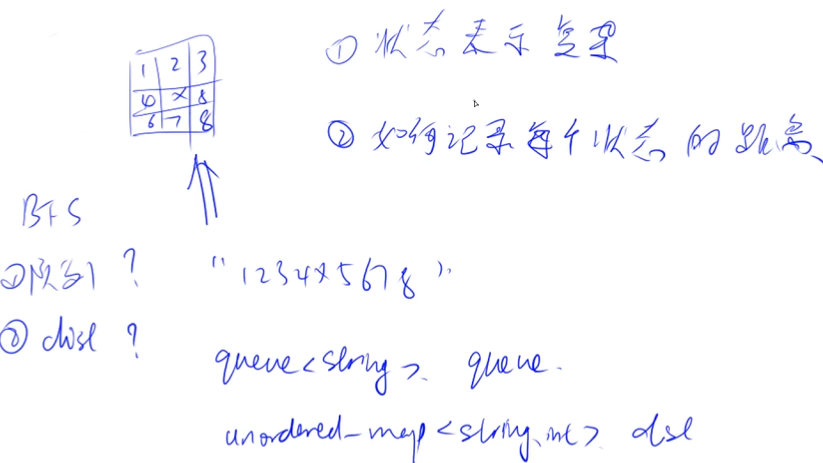 1 2 3
4 x 8
6 7 8
① 状态表示复杂
② 如何记录每个状态的距离
BFS
①队列? "1234x5678".
② dist ?
queue<string> queue.
unordered_map<string, int> dist